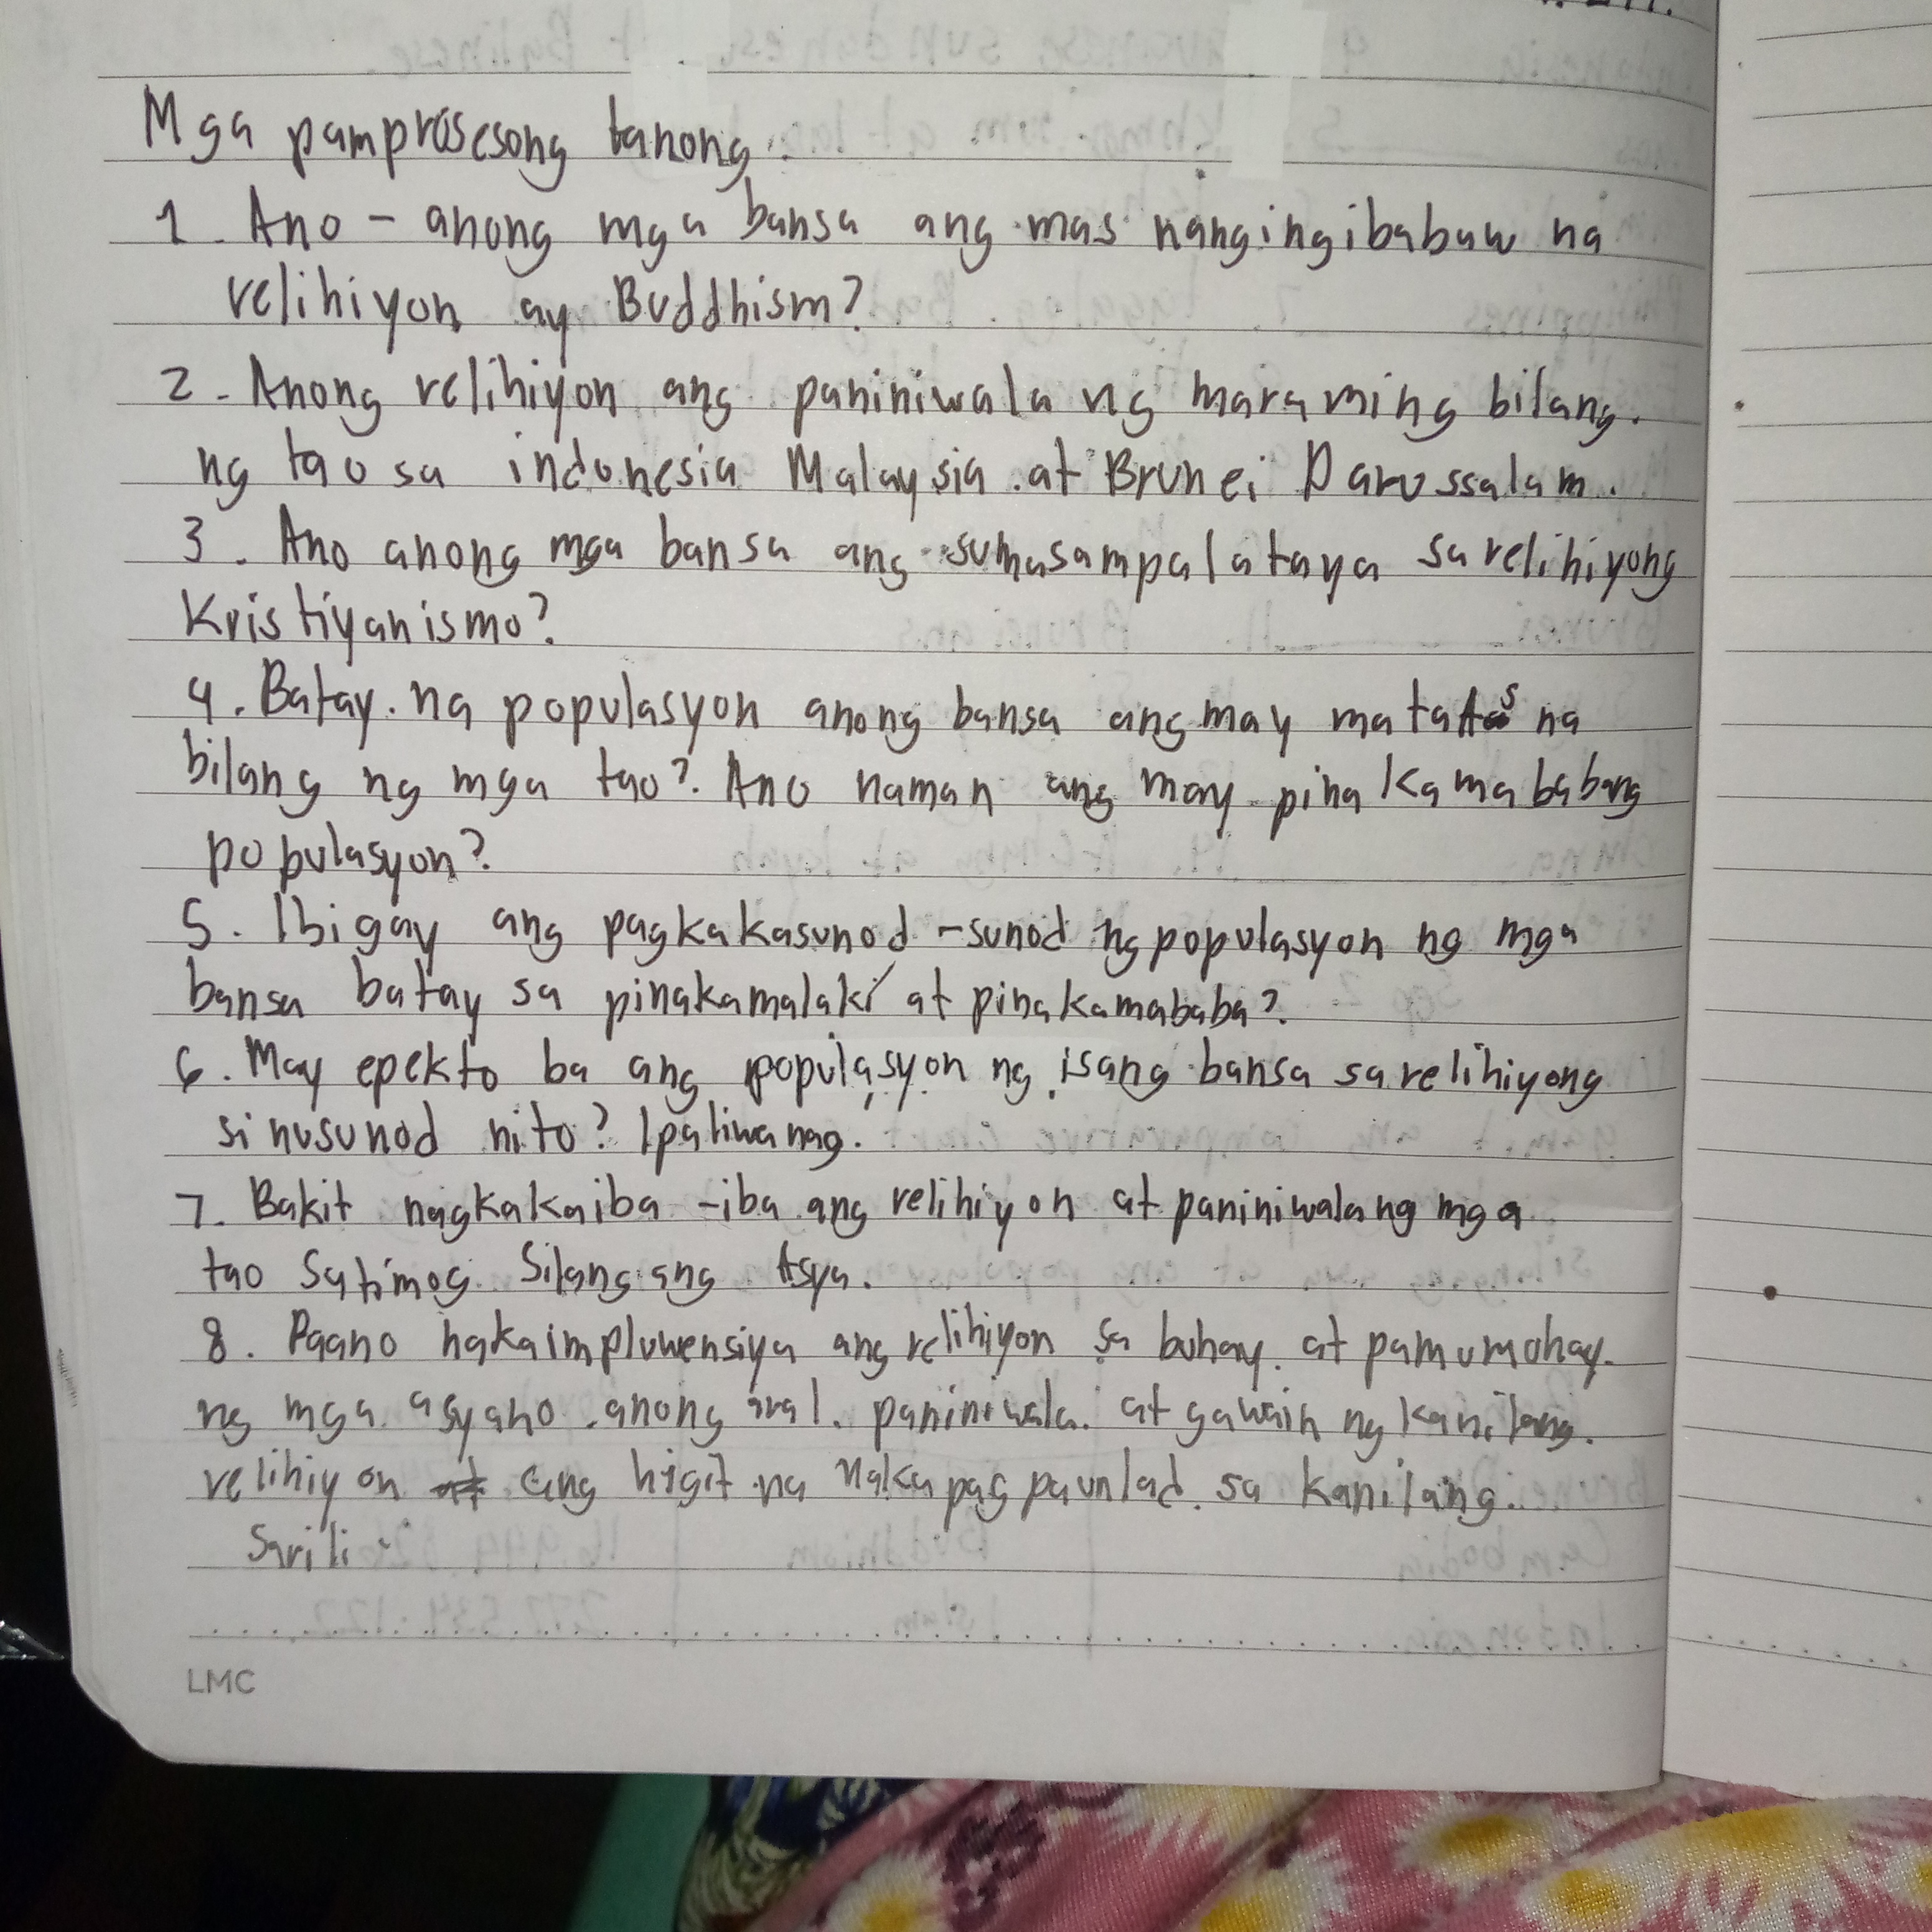 Mga pamprosesong tanong:
1. Ano - anong mga bansa ang mas nangingibabaw na
relihiyon ay Buddhism?
2. Anong relihiyon ang paniniwala ng maraming bilang.
ng tao sa indonesia Malaysia at Brunei Darussalam.
3. Ano anong mga bansa ang sumasampalataya sa relihiyong
Kristiyanismo?
4. Batay na populasyon anong bansa ang may matatas na
bilang ng mga tao? Ano naman ang may pinakamababang
populasyon?
5. Ibigay ang pagkakasunod - sunod ng populasyon ng mga
bansa batay sa pinakamalaki at pinakamababa?
6. May epekto ba ang populasyon ng isang bansa sa relihiyong
sinusunod nito? Ipaliwanag.
7. Bakit nagkakaiba - iba ang relihiyon at paniniwala ng mga
tao sa timog Silangang Asya.
8. Paano nakaimpluwensiya ang relihiyon sa buhay. at pamumuhay.
ng mga asyano. anong aral. paniniwala. at gawain ng kanilang.
relihiyon ang higit na nakapagpaunlad. sa kanilang.
Sarili.
LMC